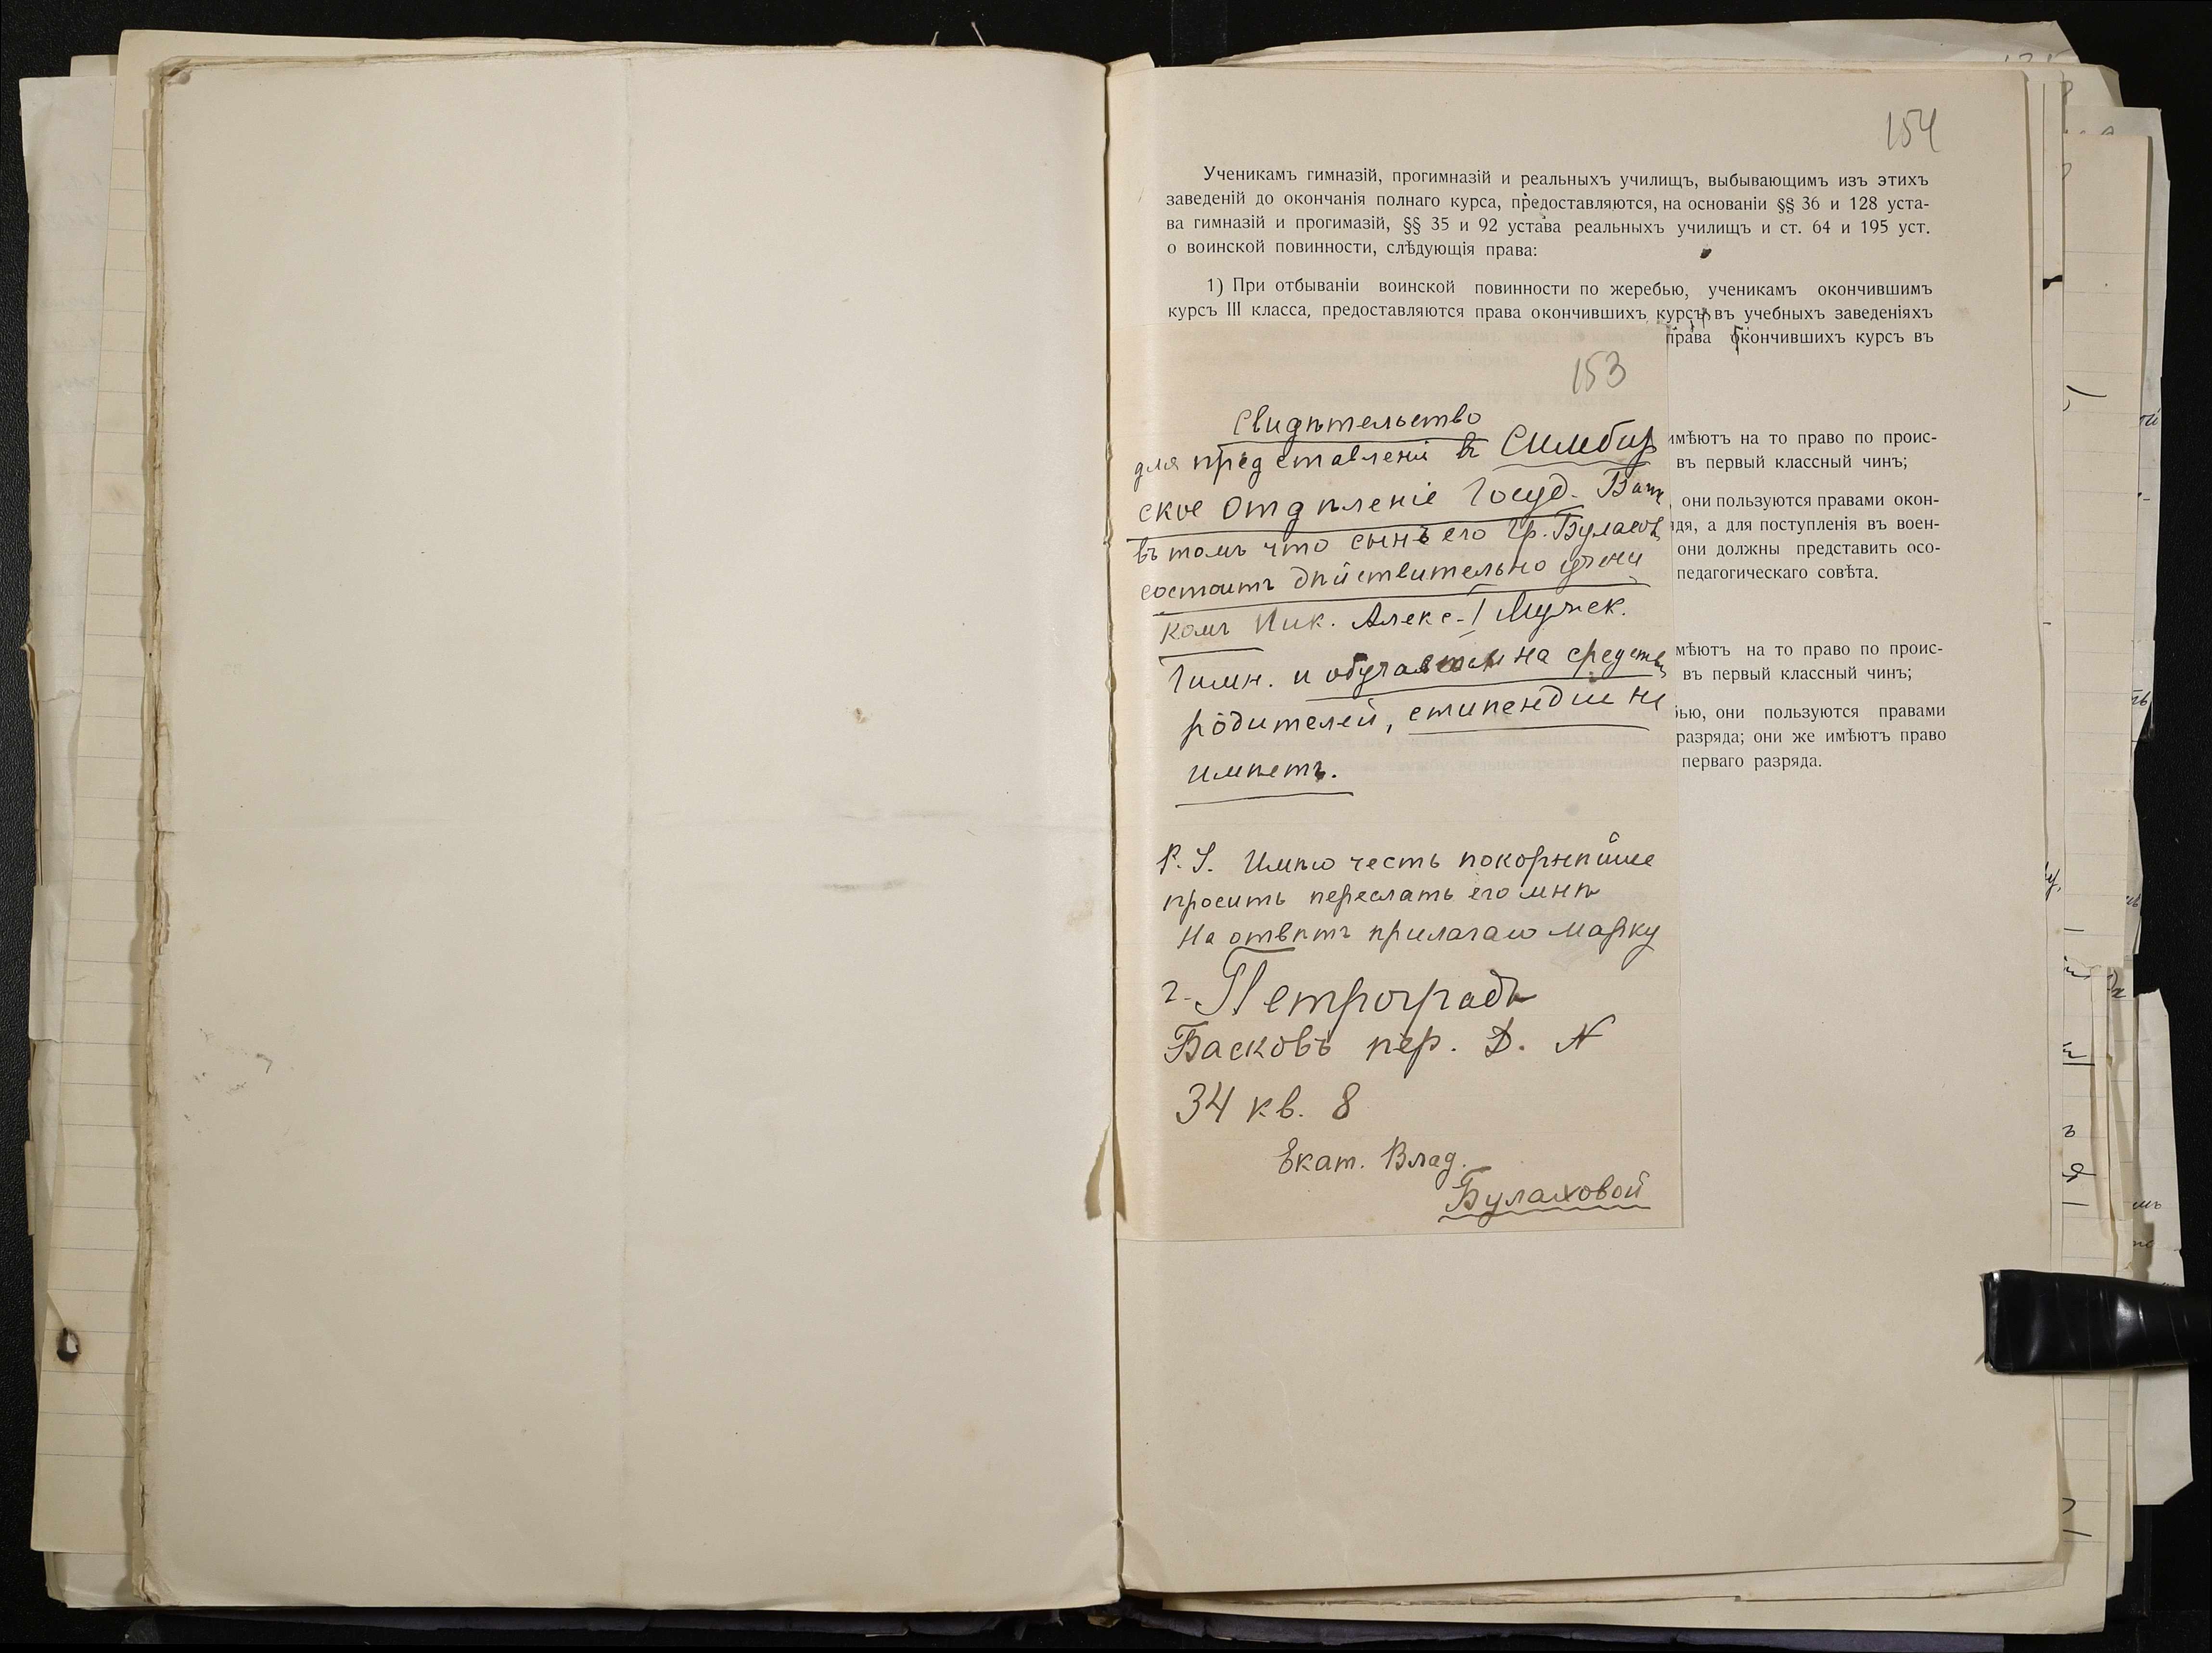 154
Ученикамъ гимназій, прогимназій и реальныхъ училищъ, выбывающимъ изъ этихъ
заведеній до окончанія полнаго курса, предоставляются, на основаніи §§ 36 и 128 уста-
ва гимназій и прогимазій, §§ 35 и 92 устава реальныхъ училищъ и ст. 64 и 195 уст.
о воинской повинности, слѣдующія права:
1) При отбываніи воинской повинности по жеребью, ученикамъ окончившимъ
курсъ III класса, предоставляются права окончившихъ курсъ въ учебныхъ заведеніяхъ
права окончившихъ курсъ въ
имѣютъ на то право по проис-
въ первый классный чинъ;
они пользуются правами окон-
а для поступленія въ воен-
они должны представить осо-
педагогическаго совѣта.
мѣютъ на то право по проис-
въ первый классный чинъ;
они пользуются правами
разряда; они же имѣютъ право
перваго разряда.
153
Свидѣтельство
для представленія въ Симбир
ское Отдѣленіе Госуд. Банк
въ томъ что сынъ его Гр. Булахов
состоитъ дѣйствительно учени
комъ Ник. Алекс. I Мужск.
Гимн. и обучается на средства
родителей, стипендіи не
имѣетъ.
P. S. Имѣю честь покорнѣйше
просить переслать его мнѣ
На отвѣтъ прилагаю марку
г. Петроградъ
Басковъ пер. Д. N
34 кв. 8
Екат. Влад.
Булаховой